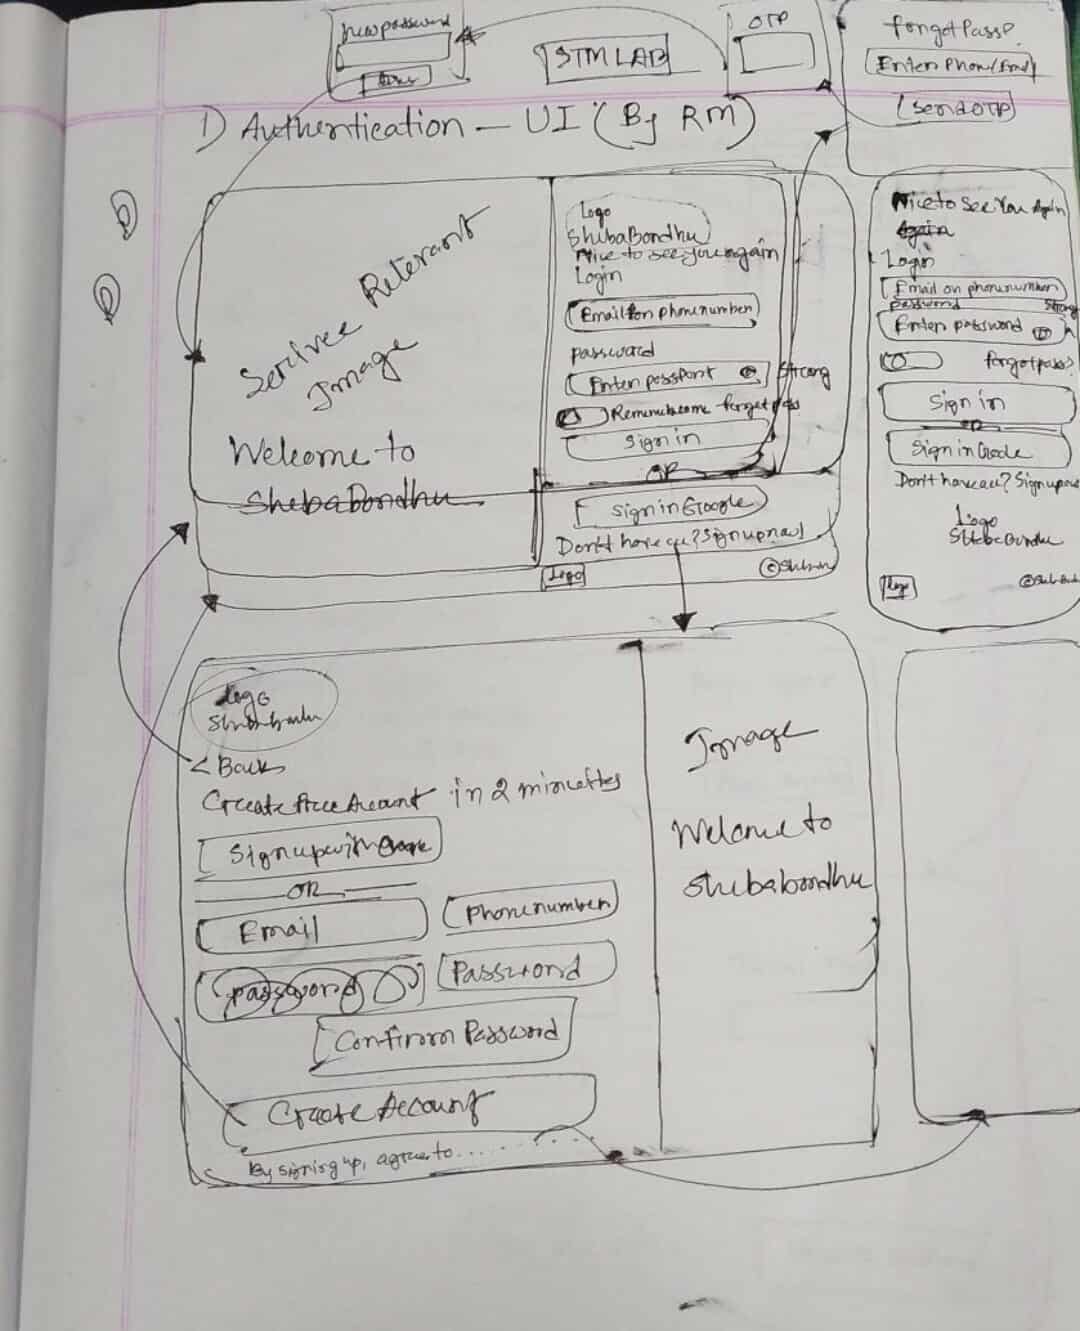 new password
OTP
STM LAB
forgot Pass?
Enter Phone/Email
Send OTP
1) Authentication - UI (By RM)
Image
Welcome to
ShebaBondhu
Logo
ShebaBondhu
Nice to see you again
Login
Email or phone number
password
Enter passport
Strong
forget pass
Sign in
OR
Sign in Google
Don't have acc? Sign up now
Logo
Nice to See You Again
Login
Email or phone number
password
Strong
Enter password
forgot pass?
Sign in
OR
Sign in Google
Don't have acc? Sign up now
Logo
ShebaBondhu
Logo
Logo
< Back
Create free Account in 2 minuettes
Sign up with Google
OR
Email
Phone number
password
Password
Confirm Password
Create Account
By signing up, agree to......
Image
Welcome to
Shebabondhu